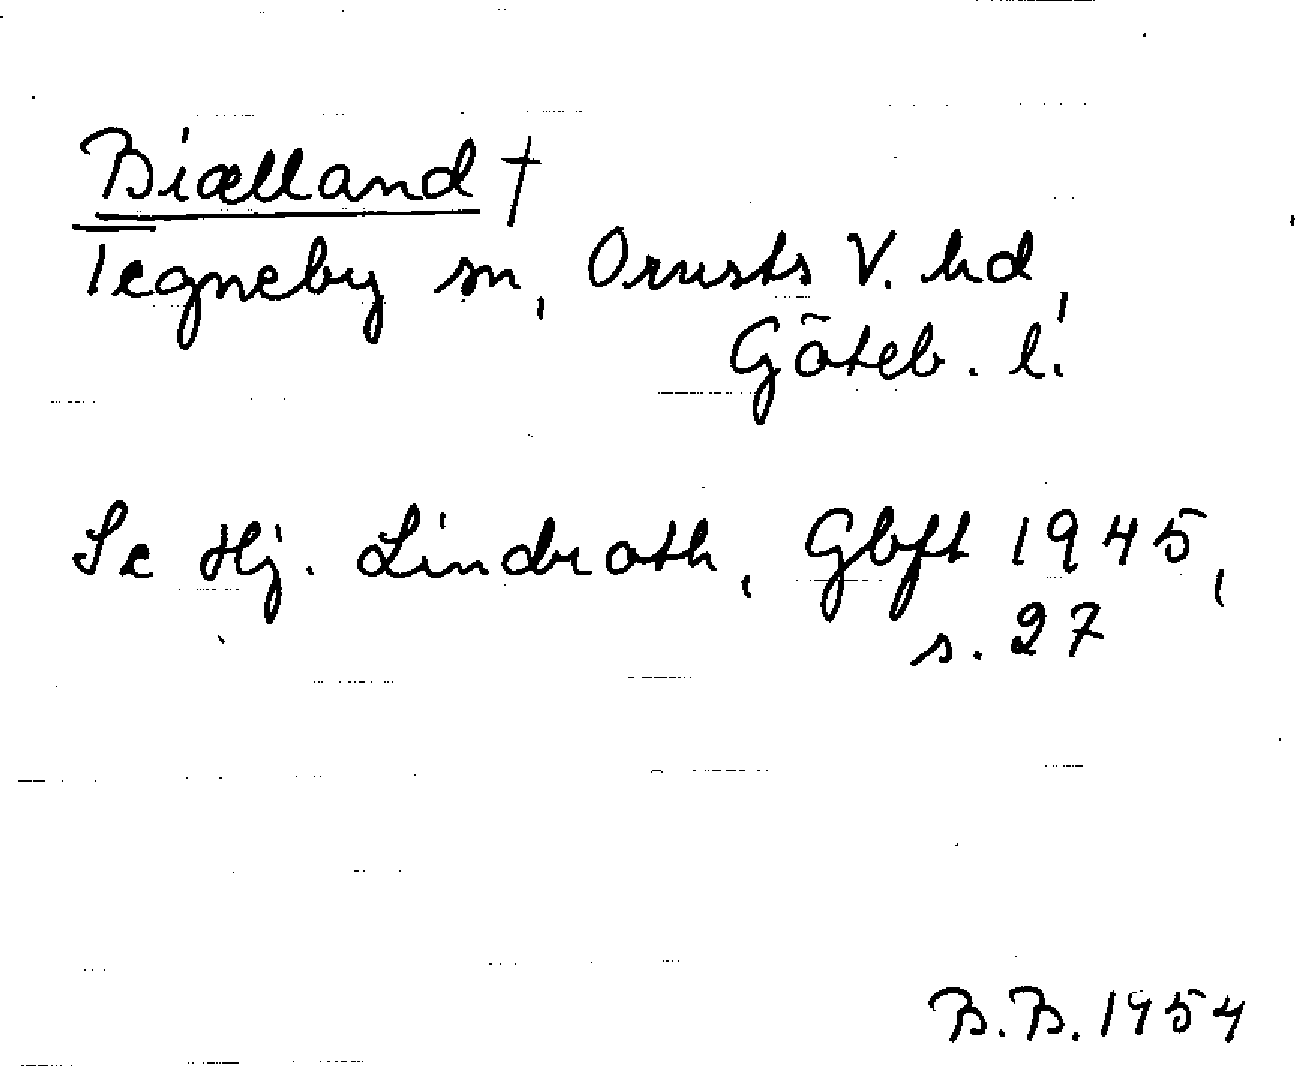 Biælland †
Tegneby sn, Orusts V. hd,
Göteb. l.
Se Hj. Lindroth, Gbft 1945,
s. 27
B.B. 1954